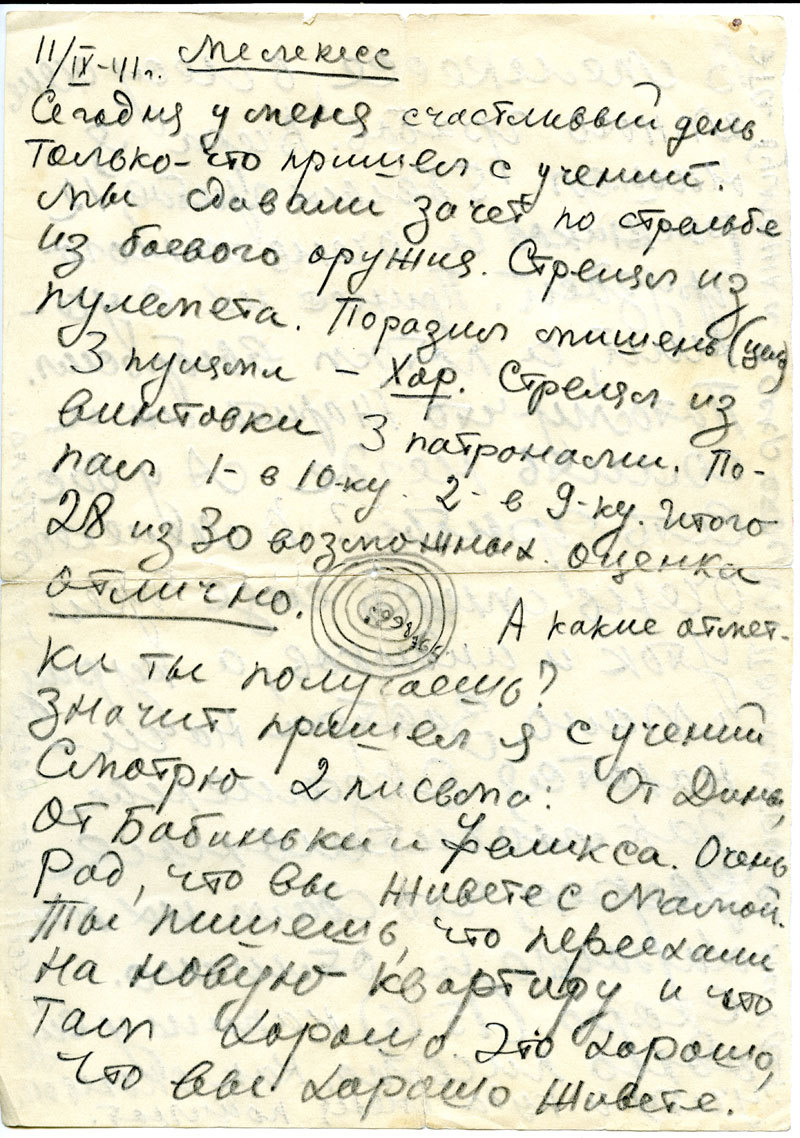 11/IX-41г. Мелекесс
Сегодня у меня счастливый день
Только-что пришел с учений.
Мы сдавали зачет по стрельбе
из боевого оружия. Стрелял из
пулемета. Поразил мишень (цель)
3 пулями – Хор. Стрелял из
винтовки 3 патронами. По-
пал 1- в 10-ку. 2- в 9-ку. Итого
28 из 30 возможных. Оценка
отлично. А какие отмет-
ки ты получаешь?
Значит пришел я с учений
Смотрю 2 письма: От Дины,
От Бабиньки и Феликса. Очень
Рад, что вы живете с Мамой.
Ты пишешь, что переехали
на новую квартиру и что
там хорошо. Это хорошо,
что вы хорошо живете.